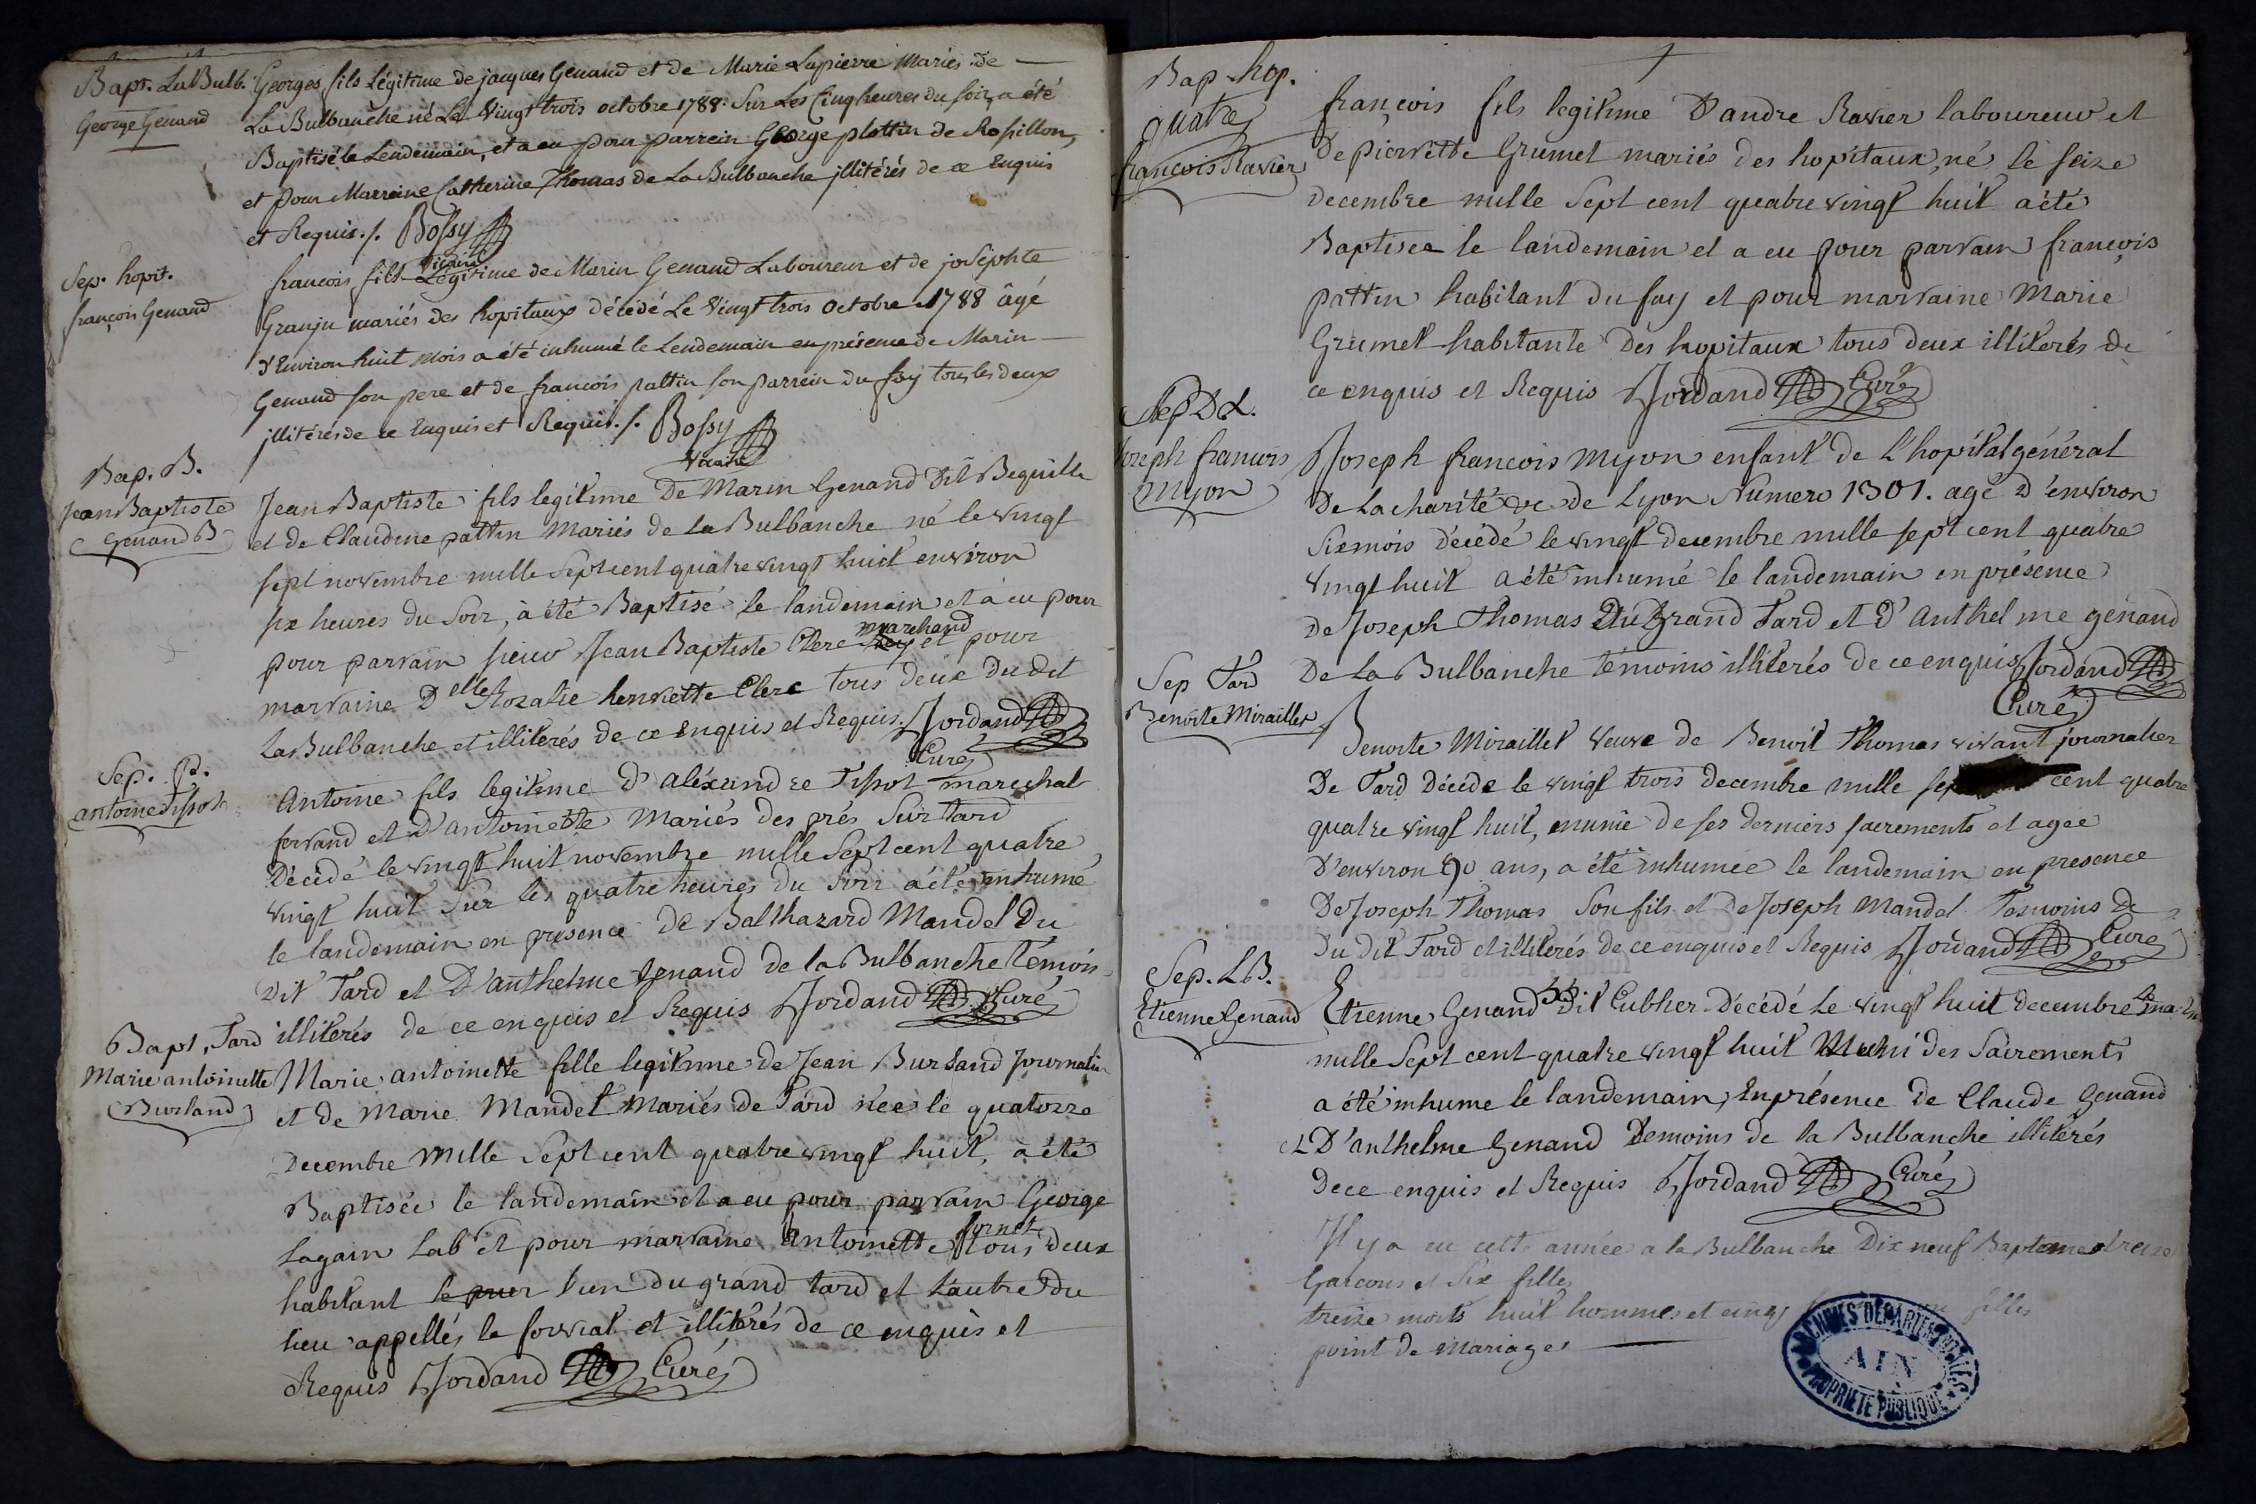 Bapt. LaBulb.
George Genand
Georges fils Légitime de jacques Genand et de Marie Lapierre Mariés de
La Bulbanche né Le Vingt trois octobre 1788. Sur Les Cinq heures du soir, a été
Baptisé le Lendemain, et a eu pour parrein George plattin de Rosillon,
et pour Marreine Catherine Thomas de La Bulbanche jllitérés de ce Enquis
et Requis./. Bossy
Vicaire
Sep. hopit.
françois Genand
francois fils Légitime de Marin Genand Laboureur et de joSephte
Granju mariés des hopitaux décédé Le Vingt trois Octobre 1788 âgé
d'Environ huit mois a été inhumé le Lendemain en présence de Marin
Genand son pere et de francois pattin son parrein du fay tous les deux
jllitérés de ce Enquis et Requis./. Bossy
Vicaire
Bap. B.
Jean Baptiste
Genand B
Jean Baptiste fils legitime De Marin Genand Dit Bequille
et de Claudine pattin Mariés de la Bulbanche né le vingt
sept novembre mille Sept cent quatre vingt huit environ
six heures du Soir, à été Baptisé le landemain et à eu pour
pour parrain sieur Jean Baptiste Clerc marchand et pour
marraine Delle Rozalie henriette Clerc tous deux du dit
La Bulbanche et illiterés de ce enquis et Requis. Jordand
Curé
Sep. P.
antoine Tissot
Antoine fils legitime d'aléxandre Tissot marechal
ferrand et D'antoinette Mariés des prés Sur tard
Décédé le vingt huit novembre mille Sept cent quatre
vingt huit Sur les quatre heures du Soir a été inhumé
le landemain en presence de Balthazard Mandel Du
Dit Tard et D'anthelme Genand de la Bulbanche témoins
illiterés de ce enquis et Requis Jordand Curé
Bapt. Tard
Marie antoinette
Burland
Marie antoinette fille legitime de Jean Burland Journalier
et de Marie Mandel mariés de Tard née le quatorze
Decembre Mille Sept cent quatre vingt huit, a été
Baptisée le landemain et a eu pour parrain George
Lagain Lab et pour marraine Antoinette fornet tous deux
habitant le pour l'un du grand tard et l'autre du
lieu appellés le forrat et illiterés de ce enquis et
Requis Jordand Curé
Bap hop.
quatre
francois Ravier
françois fils legitime D'andre Ravier laboureur et
De pierrette Grumet mariés des hopitaux, né le seize
decembre mille Sept cent quatre vingt huit a été
Baptisee le landemain et a eu pour parrain françois
pattin habitant du fay et pour marraine Marie
Grumet habitante Des hopitaux tous deux illiterés de
ce enquis et Requis Jordand Curé
Sep D L.
Joseph francois
Myon
Joseph francois Myon enfant de l'hopital général
De La charité &c de Lyon Numero 1301. agé d'environ
Six mois décédé le vingt decembre mille sept cent quatre
vingt huit a été inhumé le landemain en présence
De Joseph Thomas Du Grand Tard et D'Anthelme genand
De La Bulbanche témoins illiterés de ce enquis Jordand
Curé
Sep Tard
Benoite Miraillet
Benoite Miraillet veuve de Benoit Thomas vivant journalier
De Tard Décéde le vingt trois decembre mille sep cent quatre
quatre vingt huit, munie de ses derniers sacrements et agee
D'environ 90 ans, a été inhumee le landemain en presence
De Joseph Thomas Son fils et De Joseph Mandel Temoins de
Du Dit Tard et illiterés de ce enquis et Requis Jordand Curé
Sep. L B.
Etienne Genand
Etienne Genand Dit Cubher Décédé Le vingt huit decembre
mille Sept cent quatre vingt huit Muni des Sacrements
a été inhume le landemain, En présence de Claude Genand
et D'anthelme Genand Temoins de la Bulbanche illiterés
De ce enquis et Requis Jordand Curé
Il y a eu cette année a la Bulbanche Dix neuf Baptemes treize
Garcons et Six filles
treize morts huit hommes et cinq filles
point de Mariages
ARCHIVES DÉPARTEMENTALES
AIN
PROPRIÉTÉ PUBLIQUE